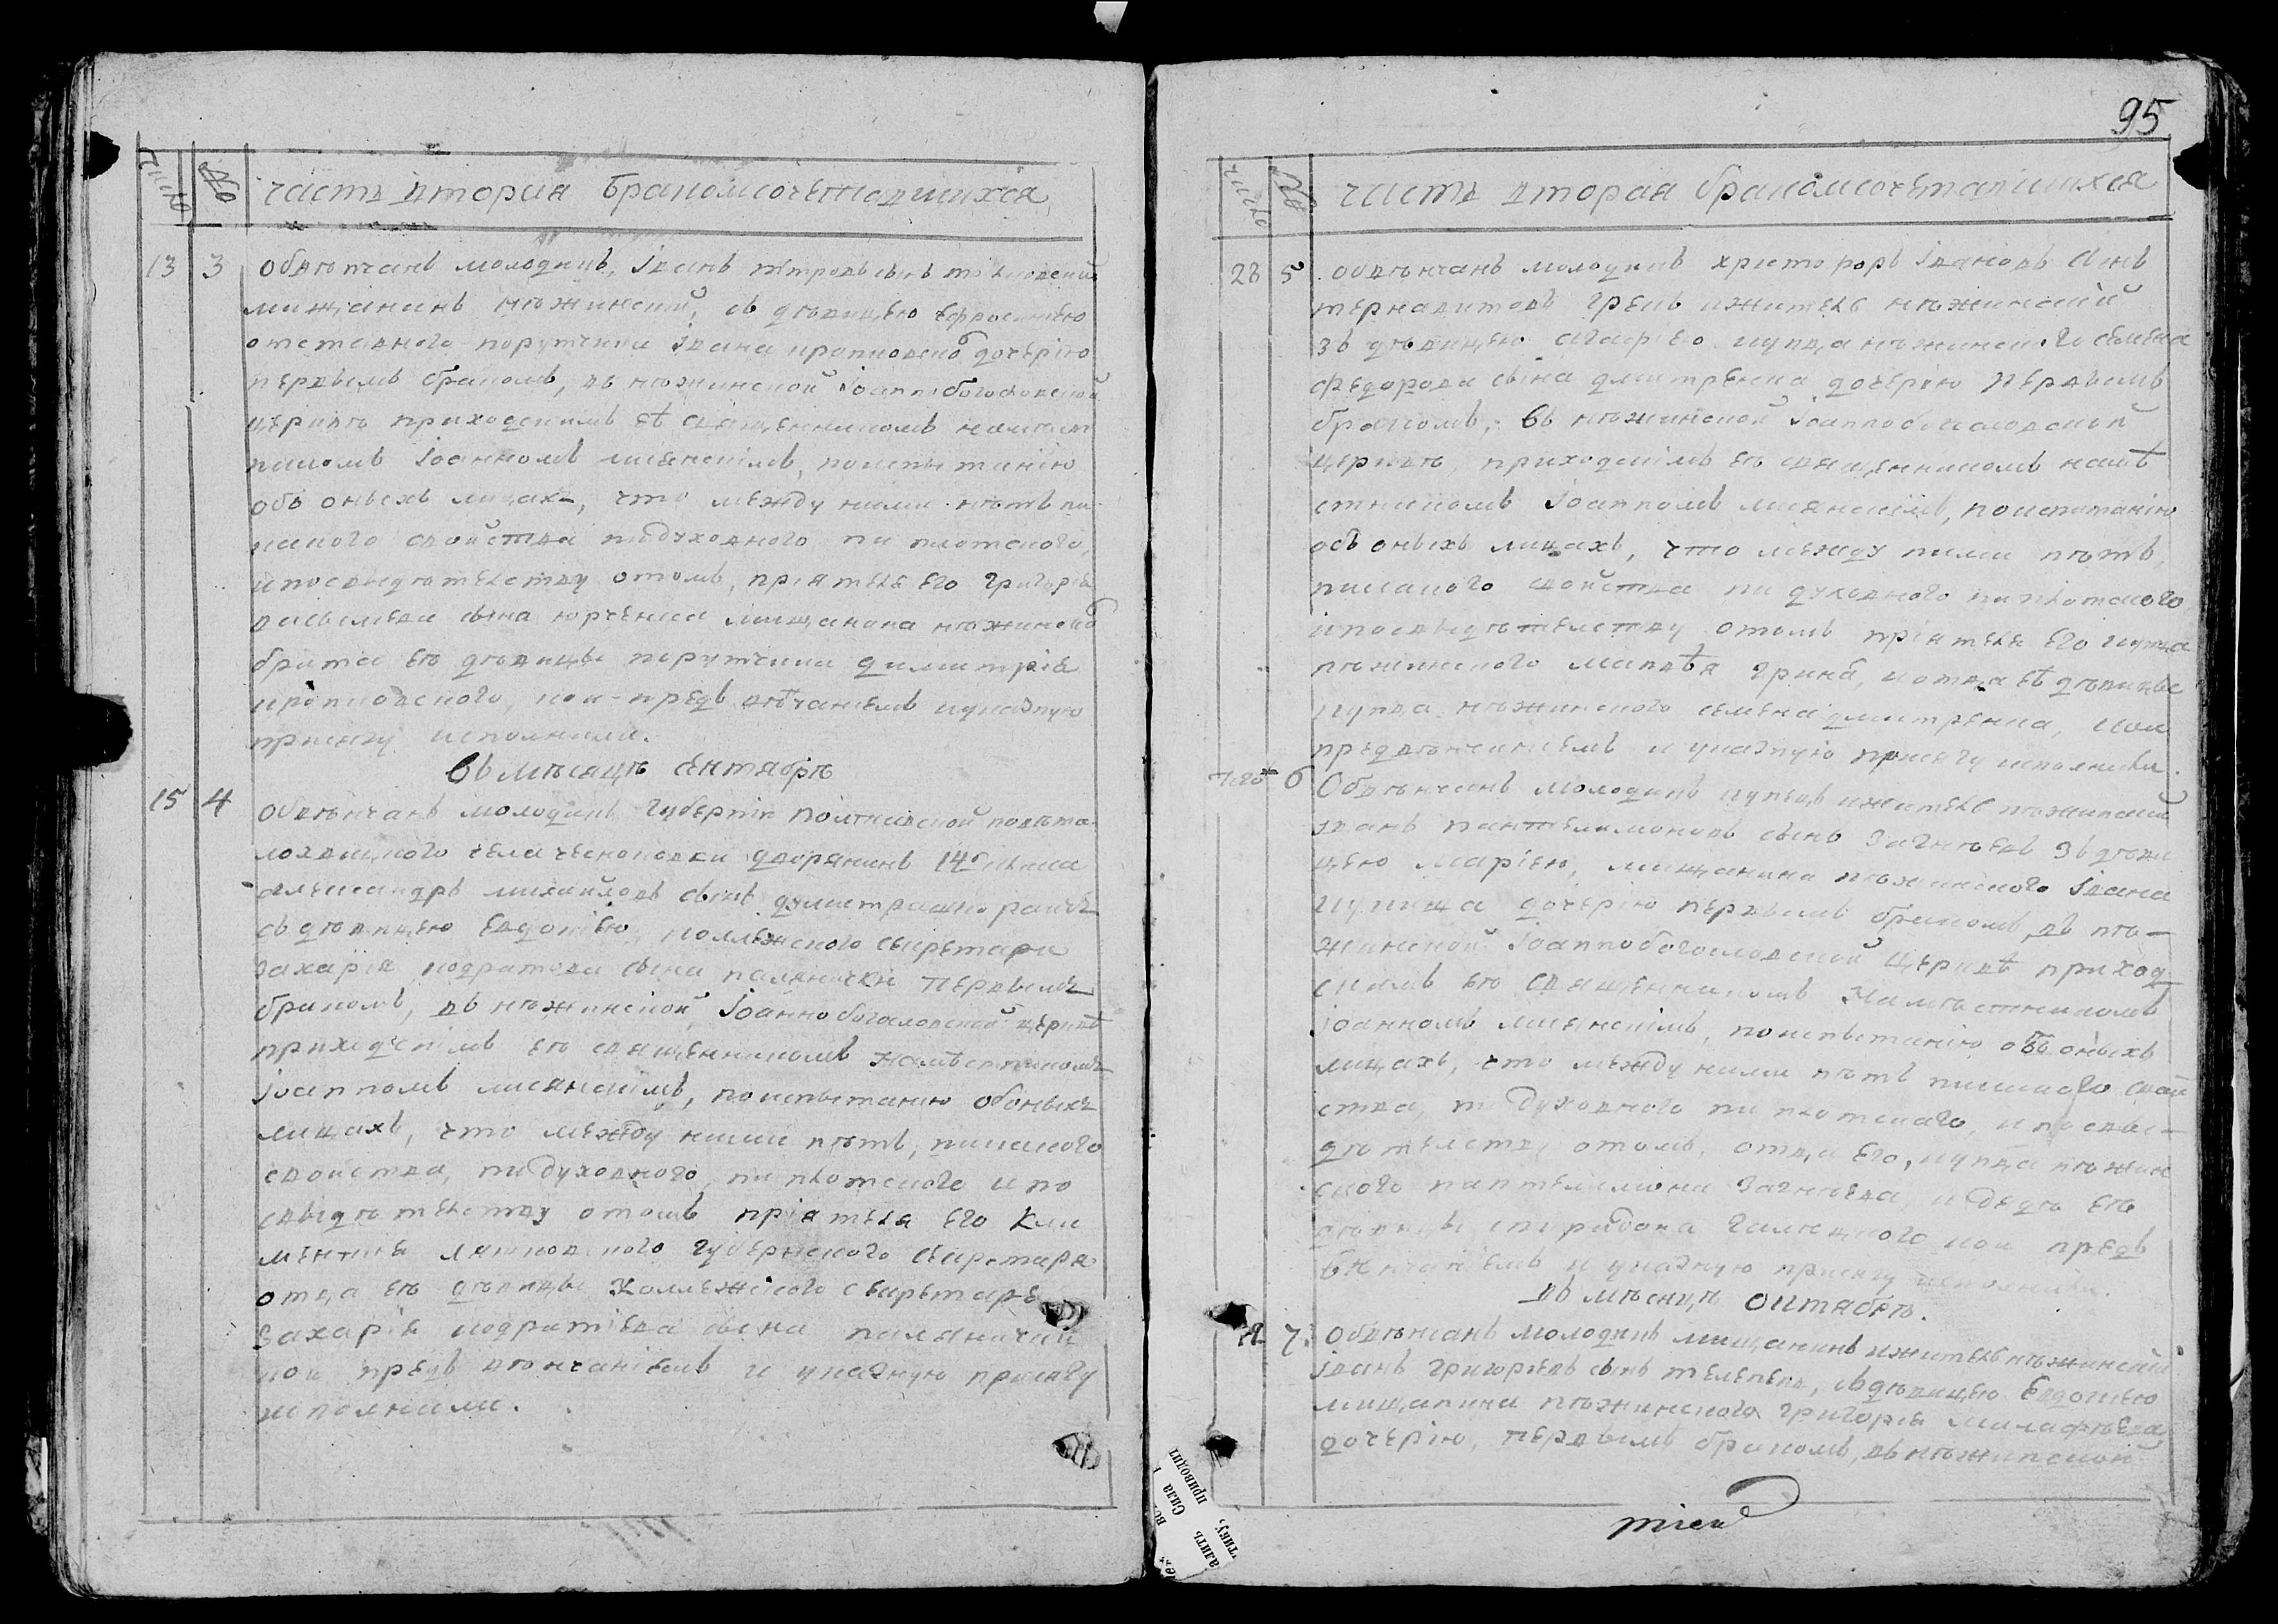 число № часть вторая бракомсочетавшихся
13 3 обвѣнчанъ молодикъ, Іванъ Петровъ сынъ
мищанинъ нѣжинский, съ дѣвицею Ефросиниею
отставного поручика Івана кропивского дочерію
первымъ бракомъ, въ нѣжинской Іоаннобогословской
церкве приходскимъ еѣ священникомъ намѣст
никомъ Іоанномъ лисянскімъ, поиспытанію
объ оныхъ лицахъ, что между ними нѣтъ ни
какого свойства нидуховного ни плотского,
ипосвыдѣтелству отомъ, пріятеля его григорія
васылева сына юрченка мищанина нѣжинского
брата еѣ дѣвицы поручика димитрія
кропивского, кои предъ вѣнчаніемъ иуказную
присягу исполнили.
Въ мѣсяцѣ сентябрѣ
15 4 обвѣнчанъ молодикъ губерніи полтавской повѣта
лохвицкого села чесноковки дворянинъ 14 класа
александръ михайловъ сынъ
съ дѣвицею Евдокіею, колежского секретаря
захарія кодратова сына палянички первымъ
бракомъ, въ нѣжинской Іоаннобогословской церквѣ
приходскімъ еѣ священникомъ намѣстникомъ
Іоанномъ лисянскімъ, поиспытанию обоныхъ
лицахъ, что между ними нѣтъ, никакого
свойства, нидуховного, ни плотского и по
свыдѣтелству отомъ пріятеля его Кли
ментия губернского секретаря
отца еѣ дѣвицы Коллежского секретаря
Захарія кодратіева сына палянички
кои предъ вѣнчаніемъ и указную присягу
исполнили.
95
число № часть вторая бракомсочетавшихся
28 5 обвѣнчанъ молодикъ христофоръ Івановъ сынъ
грекъ ижитель нѣжинский
зъ дѣвицею агафіею купца нѣжинского семена
федорова сына дмитренка дочерію первымъ
бракомъ, въ нѣжинской Іоаннобогословской
церквѣ, приходскімъ еѣ священникомъ намѣ
стникомъ Іоанномъ лисянскімъ, поиспитанію
объ оныхъ лицахъ, что между ними нѣтъ,
никакого свойства ни духовного ниплотского,
ипосвыдѣтелству отомъ пріятеля его купца
нѣжинского матвѣя грика, иотца еѣ дѣвицы
купца нѣжинского семена дмитренка, кои
предвѣнчаниемъ и указную присягу исполнили.
6 Обвѣнчанъ молодикъ купецъ ижитель нѣжинский
Іванъ пантелимоновъ сынъ Загнѣевъ зъ дѣви
цею Маріею, мищанина нѣжинского Івана
дочерію первымъ бракомъ, въ нѣ-
жинской Іоаннобогословской церквѣ приход
скимъ еѣ священникомъ Намѣстникомъ
Іоанномъ лисянскімъ, поиспытанію объ оныхъ
лицахъ, что между ними нѣтъ никакого свой
ства, ни духовного ни плотского, и посвы-
дѣтелству отомъ, отца его, купца нѣжин
ского пантелимона Загнѣева, и дѣда еѣ
дѣвицы спиридона кои предъ
вѣнчаніемъ и указную присягу исполнили.
въ мѣсяцѣ октябрѣ.
7. обвѣнчанъ молодикъ мищанинъ ижитель нѣжинский
Іванъ григориевъ сынъ съ дѣвицею Евдокіею
мищанина нѣжинского григорія
дочерію, первымъ бракомъ, въ нѣжинской